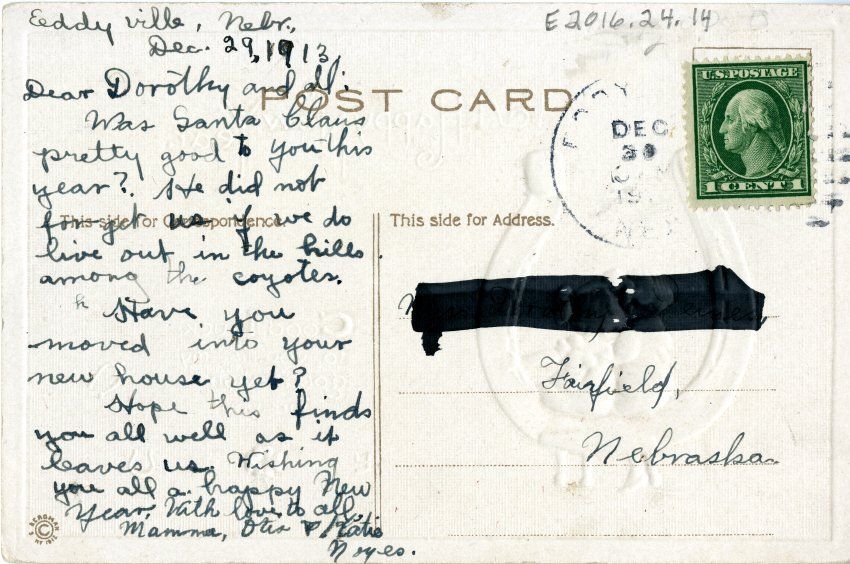 E2016.24.14
Eeddyville, Nebr.,
Dec. 29, 1913
Dear Dorothy and all:
POST CARD
Was Santa Claus
pretty good to you this
year? He did not
forget us if we do
live out in the hills
among the coyotes.
Have you
moved into your
new house yet?
Hope this finds
you all well as it
leaves us. Wishing
you all a happy New
Year, With love to all,
Mamma, Otis & Katie
This side for Correspondence
This side for Address.
U.S. POSTAGE
1 CENT 1
EDDY
DEC
30
NE
Fairfield,
Nebraska.